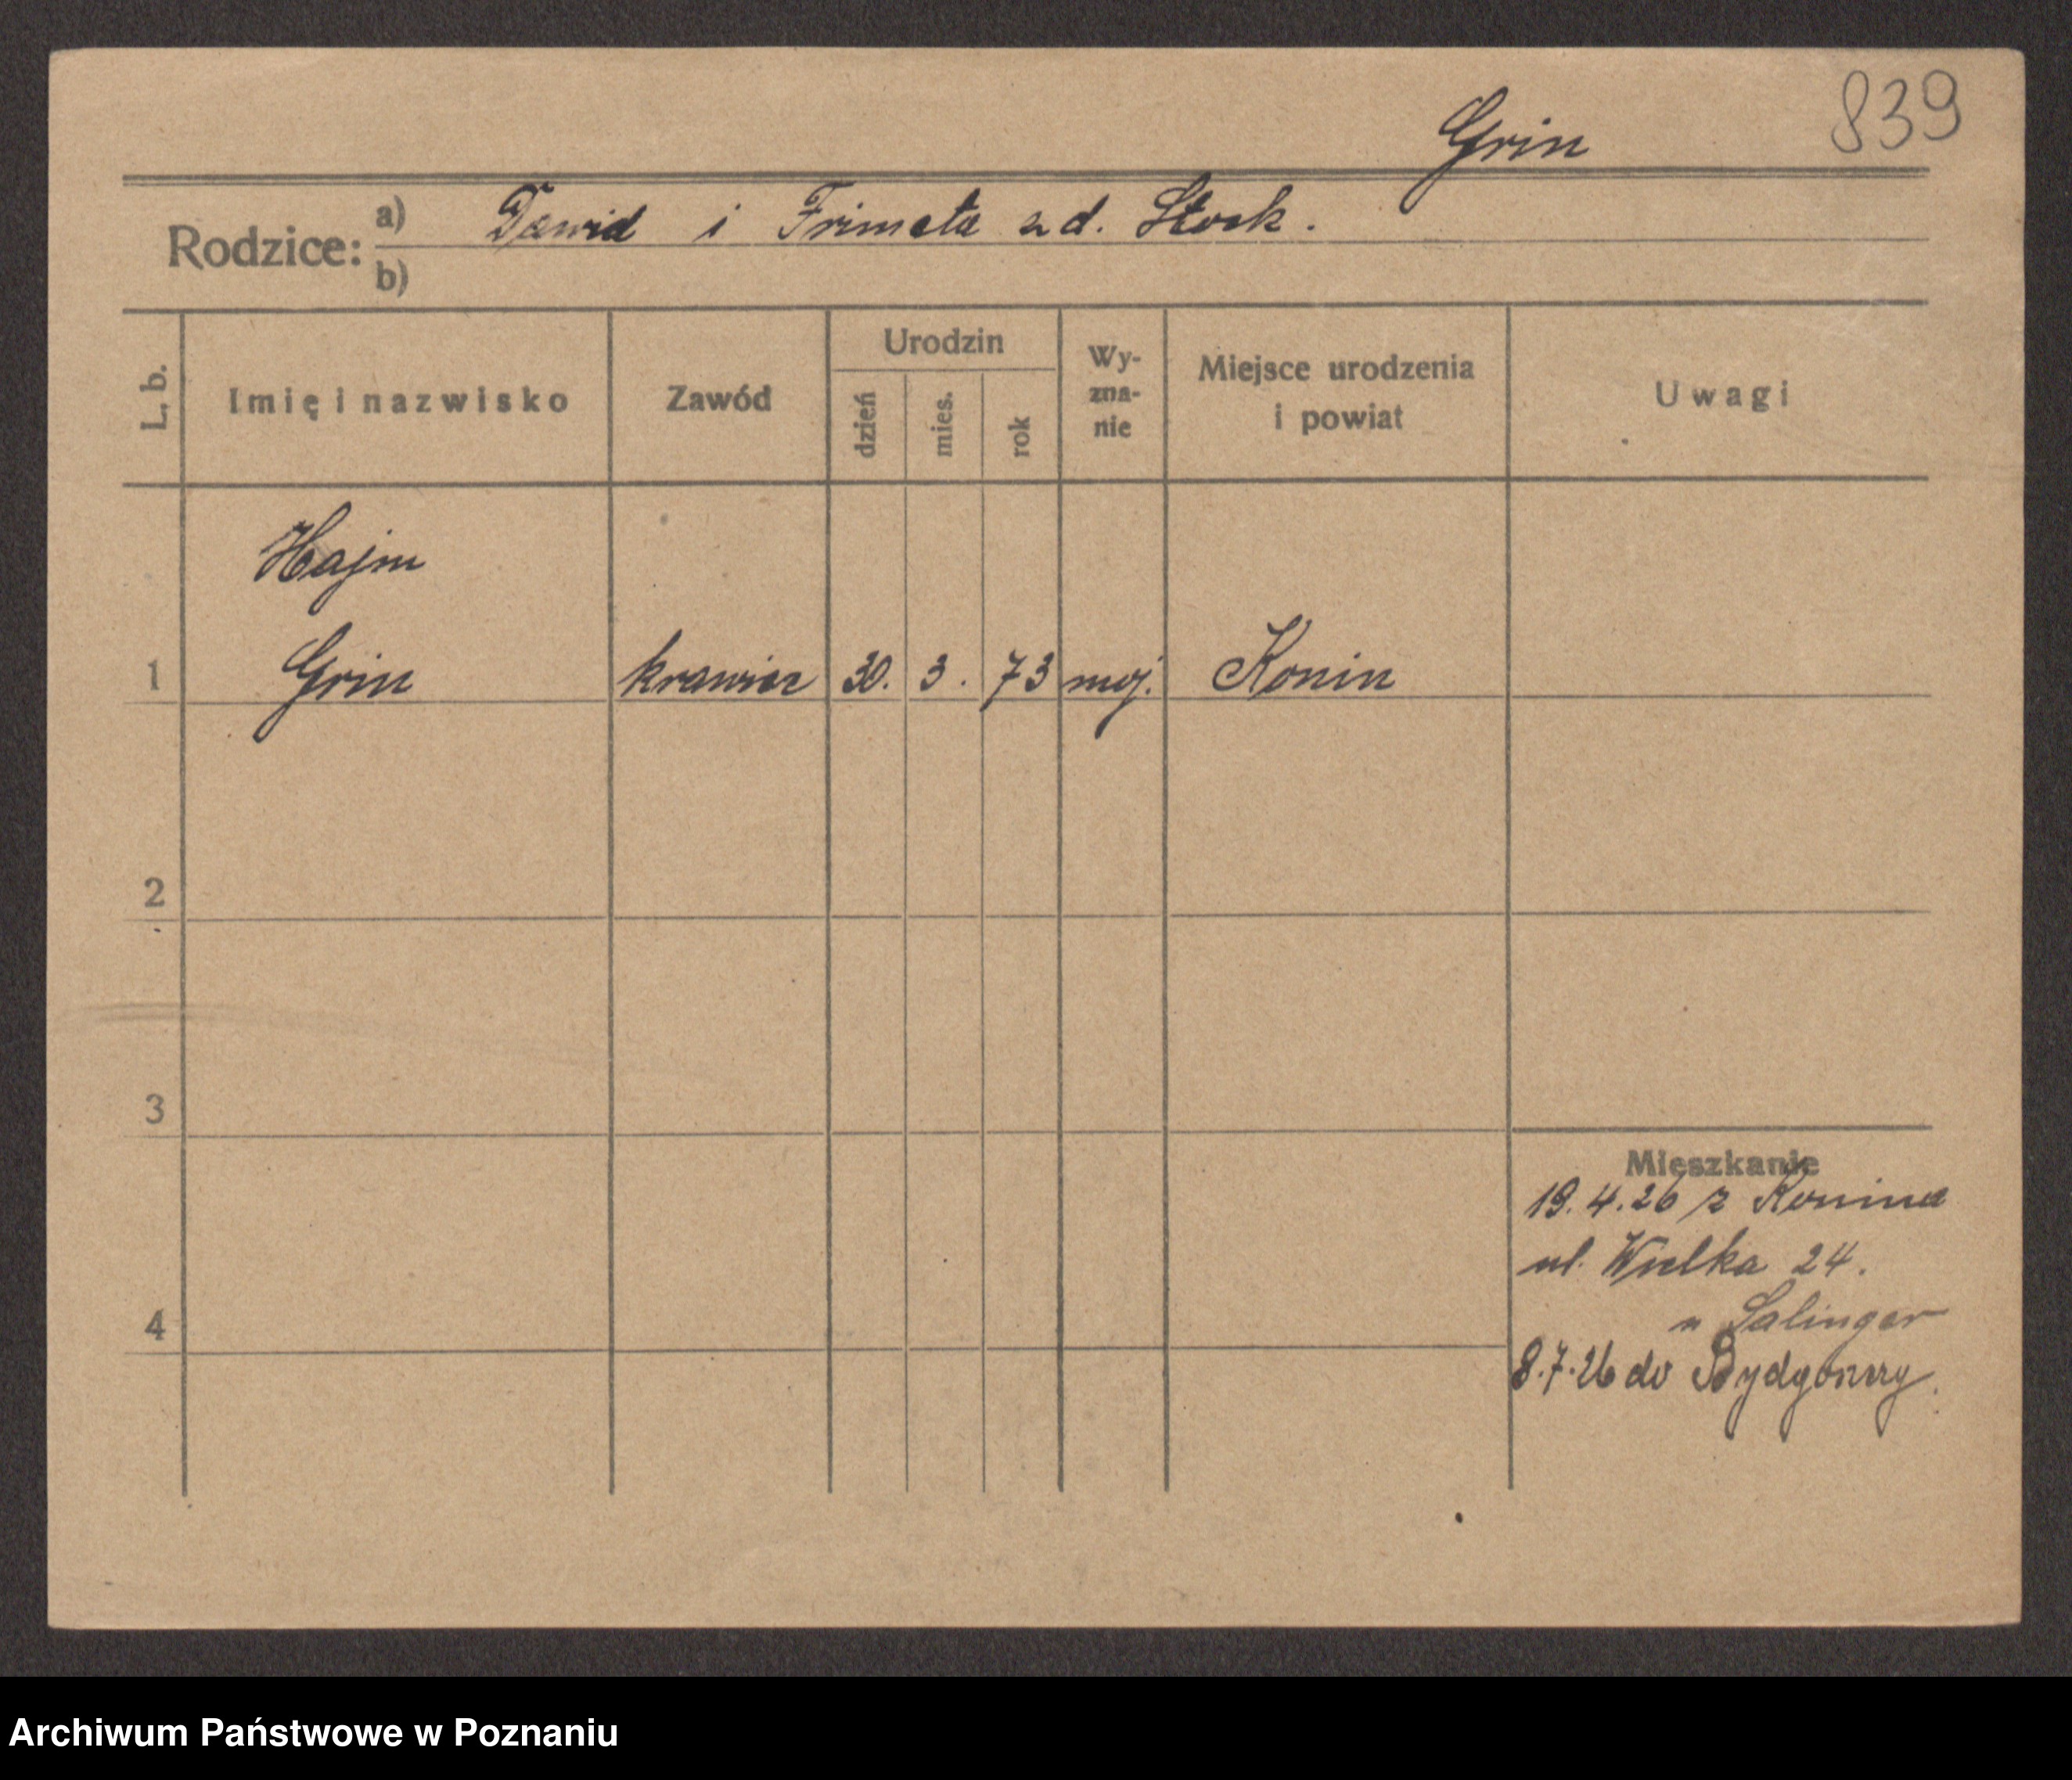 839
Grin
Rodzice: a) Dawid i Frimeta zd. Stock.
b)
L. b. Imię i nazwisko Zawód Urodzin dzień mies. rok Wy-zna-nie Miejsce urodzenia i powiat Uwagi
Hajm
1 Grin krawiec 30. 3. 73 moj. Konin
2
3
Mieszkanie
19.4.26 z Konina
ul. Wielka 24.
u Salinger
4
8.7.26 do Bydgoszczy.
Archiwum Państwowe w Poznaniu